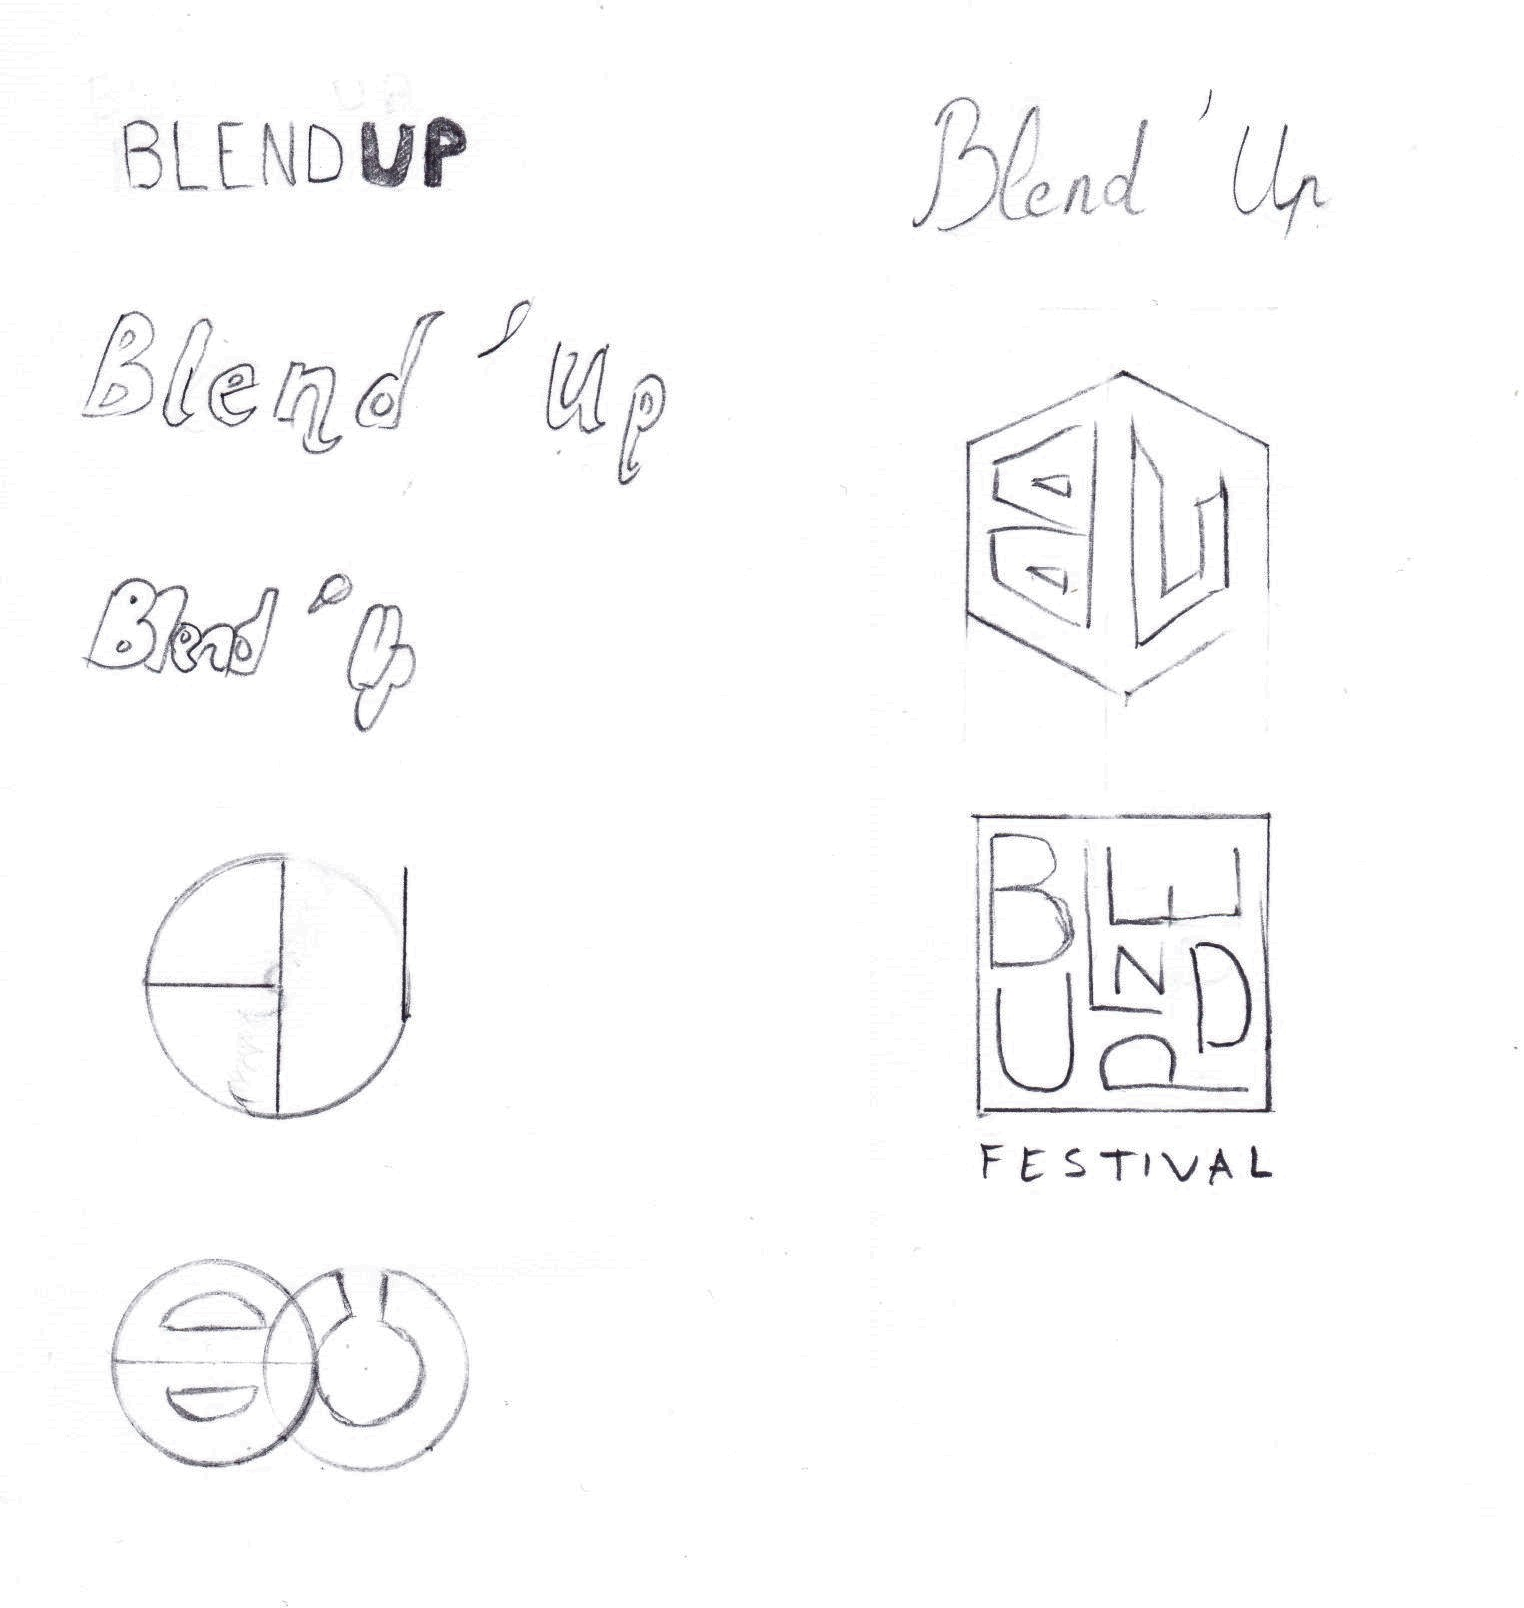 BLENDUP
Blend 'Up
Blend 'Up
Blend 'Up
BU
BLEND
UP
FESTIVAL
BU